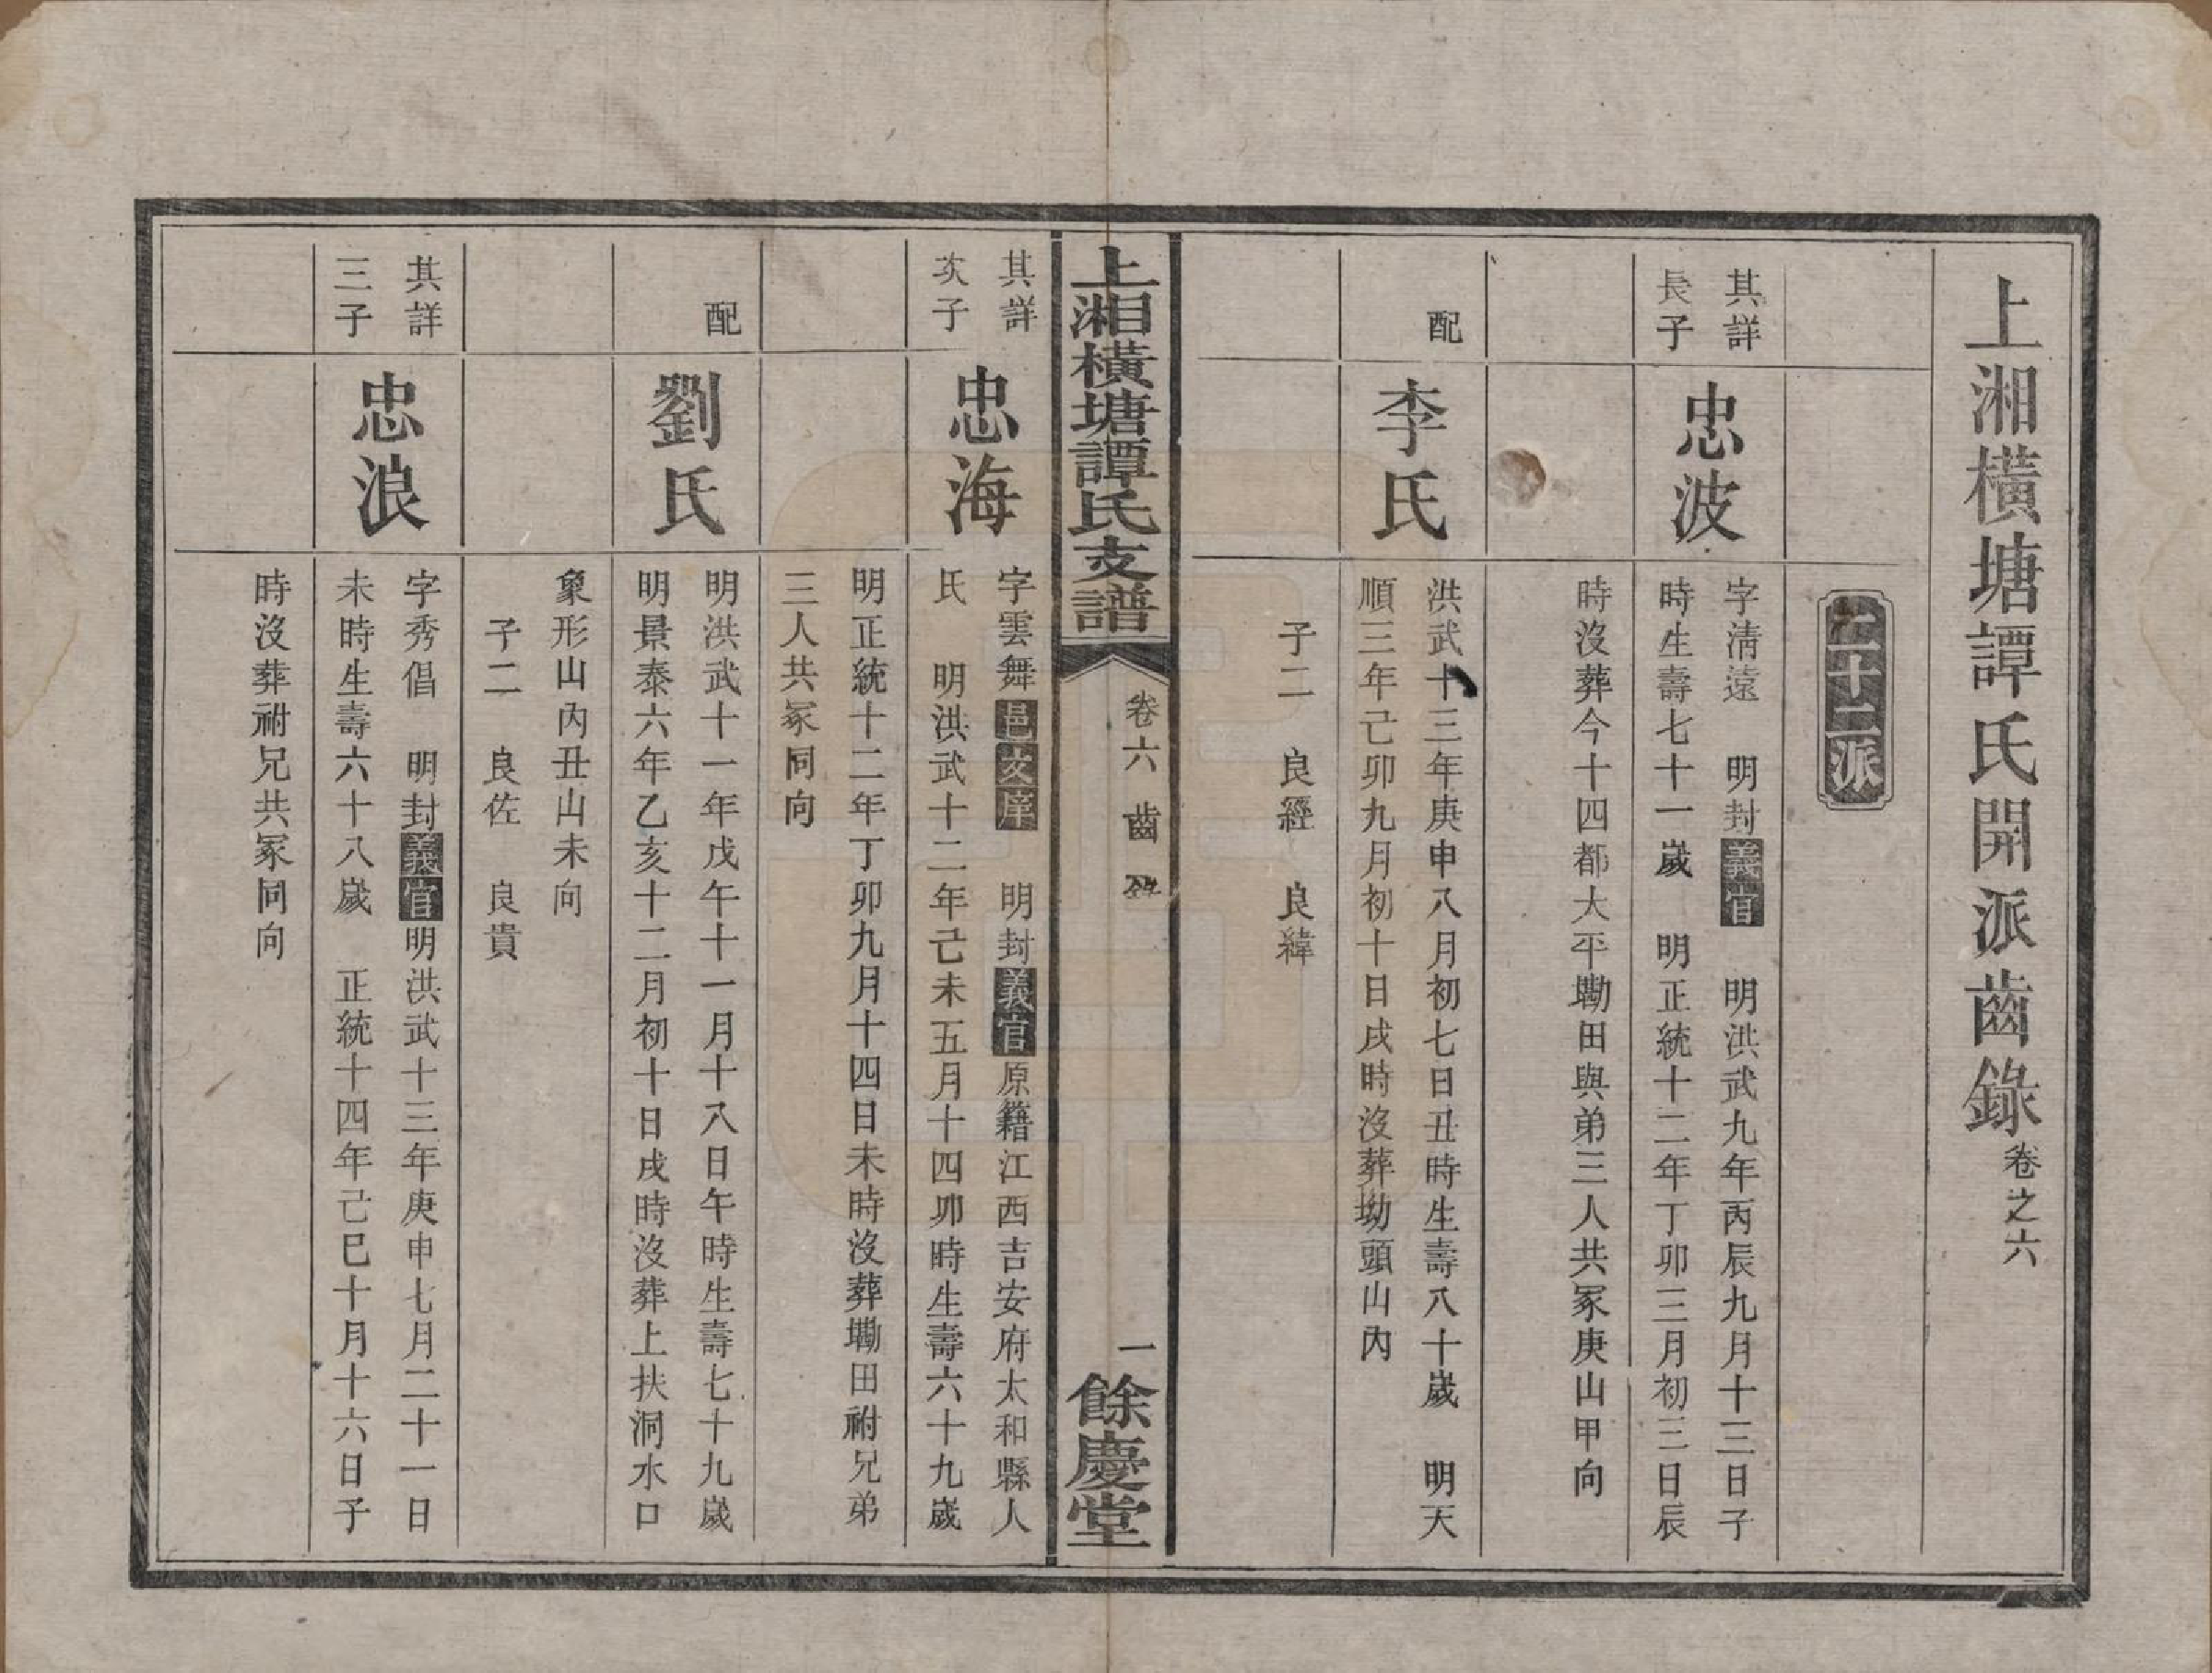 上湘橫塘譚氏開派齒錄卷之六
二十二派
其詳
長子
忠波
字淸遠　明封義官　明洪武九年丙辰九月十三日子
時生壽七十一歲　明正統十二年丁卯三月初三日辰
時沒葬今十四都大平墈田與弟三人共冢庚山甲向
配
李氏
洪武十三年庚申八月初七日丑時生壽八十歲　明天
順三年己卯九月初十日戌時沒葬坳頭山內
子二　良經　良緯
上湘橫塘譚氏支譜
卷六　齒錄
一
餘慶堂
其詳
次子
忠海
字雲舞邑文庠　明封義官原籍江西吉安府太和縣人
氏　明洪武十二年己未五月十四卯時生壽六十九歲
明正統十二年丁卯九月十四日未時沒葬墈田祔兄弟
三人共冢同向
配
劉氏
明洪武十一年戊午十一月十八日午時生壽七十九歲
明景泰六年乙亥十二月初十日戌時沒葬上扶洞水口
象形山內丑山未向
子二　良佐　良貴
其詳
三子
忠浪
字秀倡　明封義官明洪武十三年庚申七月二十一日
未時生壽六十八歲　正統十四年己巳十月十六日子
時沒葬祔兄共冢同向